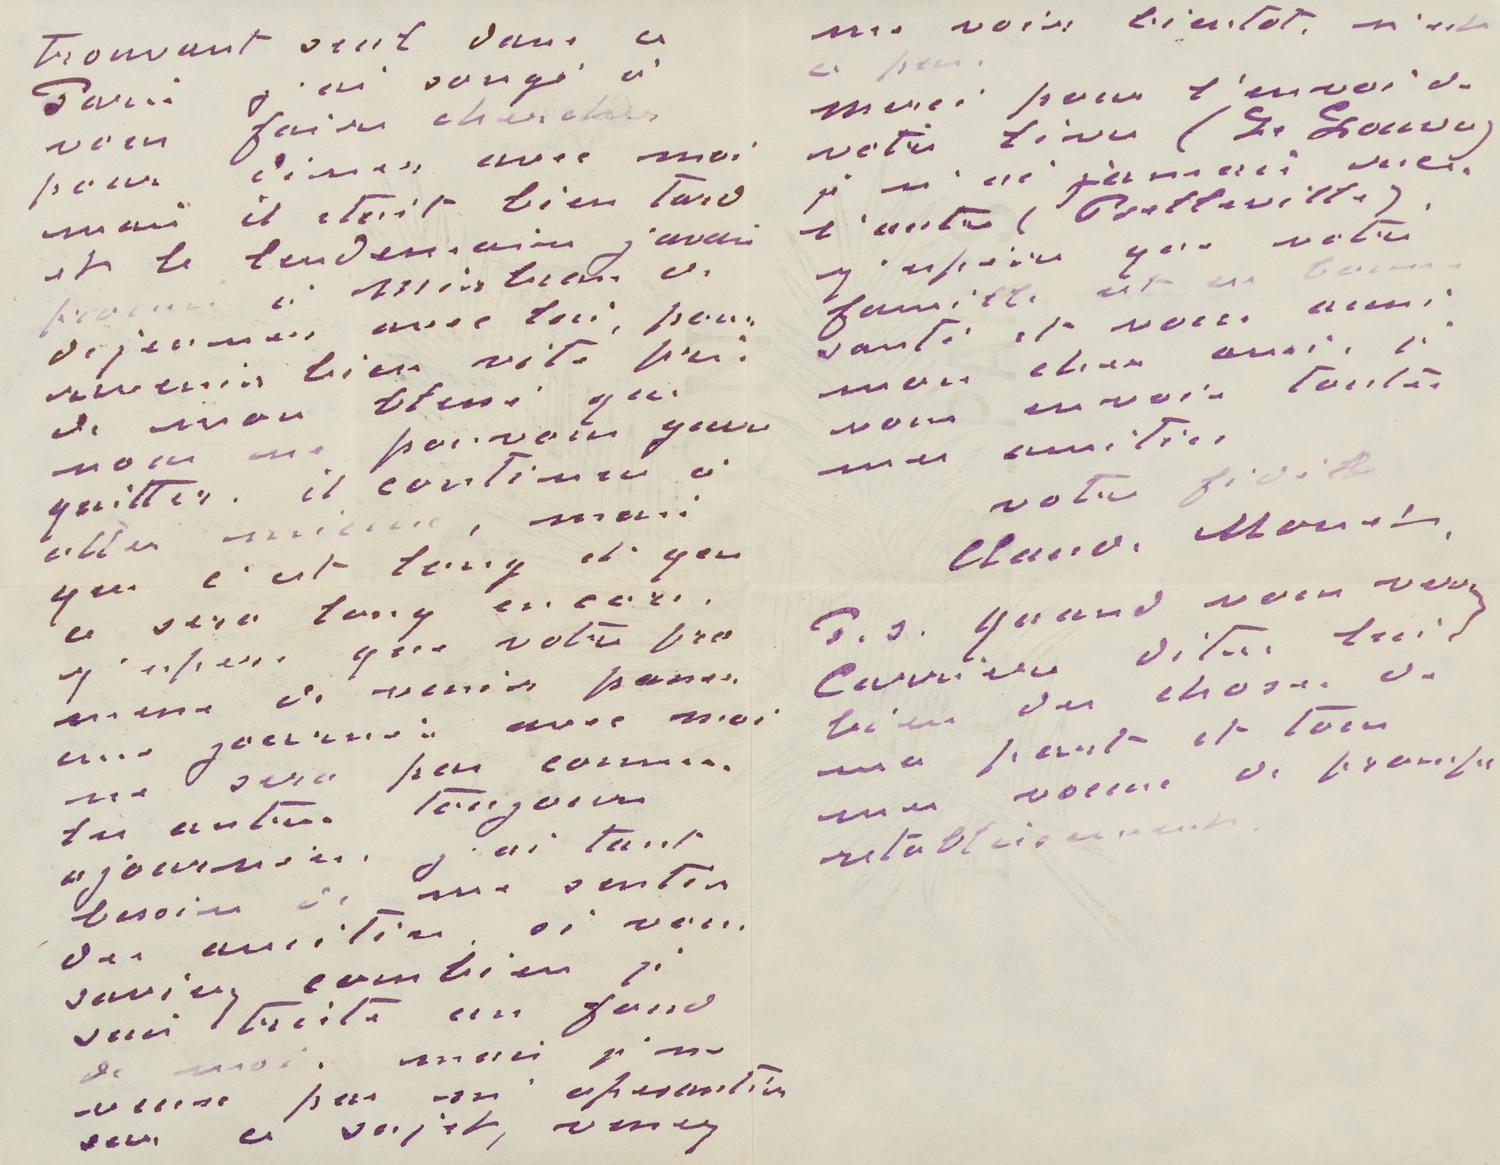 trouvant seul dans ce
Paris j'ai songé à
vous faire chercher
pour diner avec moi
mais il était bien tard
et le lendemain j'avais
promis à Mirbeau de
déjeuner avec lui, pour
revenir bien vite près
de mon blessé que
nous ne pouvons guère
quitter. il continue à
aller mieux, mais
que c'est long et que
ce sera long encore.
j'espère que votre pro
messe de venir passer
une journée avec moi
ne sera pas comme
les autres toujours
ajournée. j'ai tant
besoin de me sentir
des amitiés, si vous
saviez combien je
suis triste au fond
de moi. mais je ne
veux pas m'apesantir
sur ce sujet, venez
me voir bientot, n'est
ce pas.
Merci pour l'envoi de
votre livre (Le Louvre)
je n'ai jamais reçu
l'autre (Belleville).
j'espère que votre
famille est en bonne
santé et vous aussi
mon cher ami, je
vous envoie toutes
mes amitiés
votre fidèle
Claude Monet.
P.S. quand vous verrez
Carrière dites lui
bien des choses de
ma part et tous
mes voeux de prompt
rétablissement.